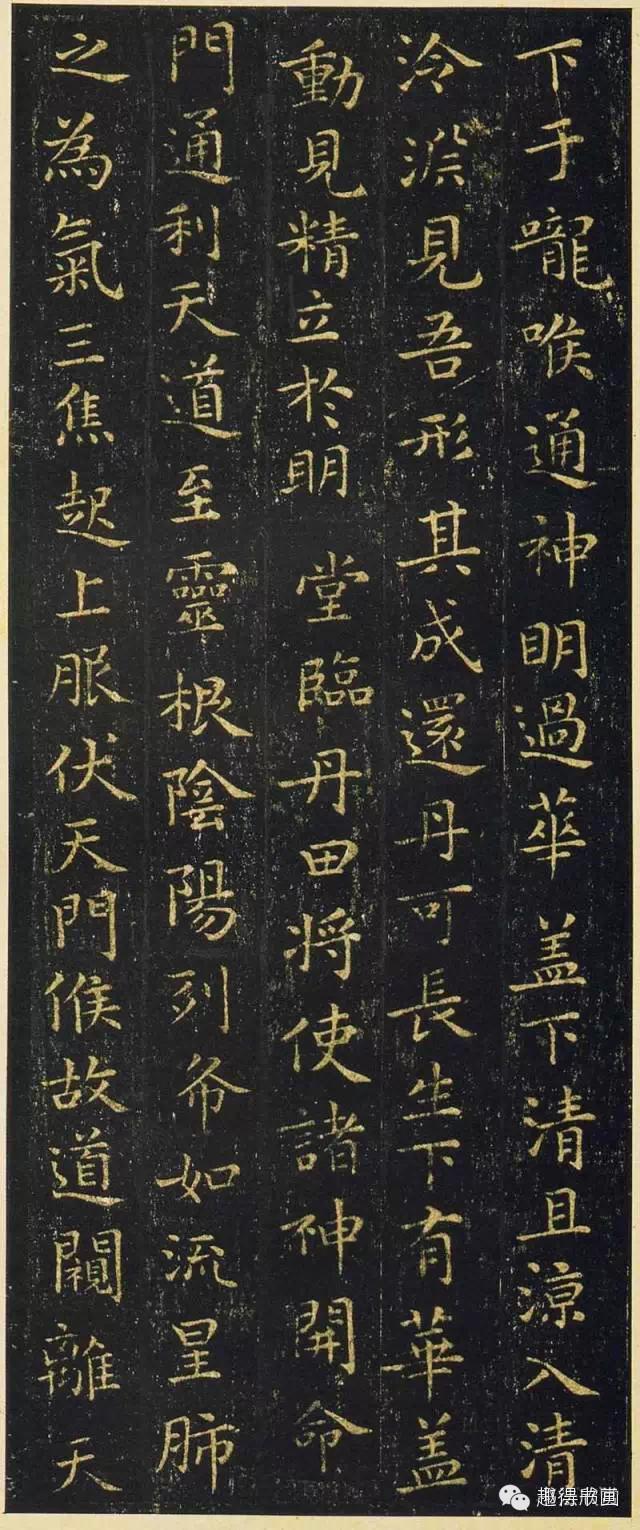 下于嚨喉通神明過華盖下清且涼入清
泠淵見吾形其成還丹可長生下有華盖
動見精立於明堂臨丹田将使諸神開命
門通利天道至靈根陰陽列布如流星肺
之為氣三焦起上服伏天門候故道闚離天
趣得欣圃